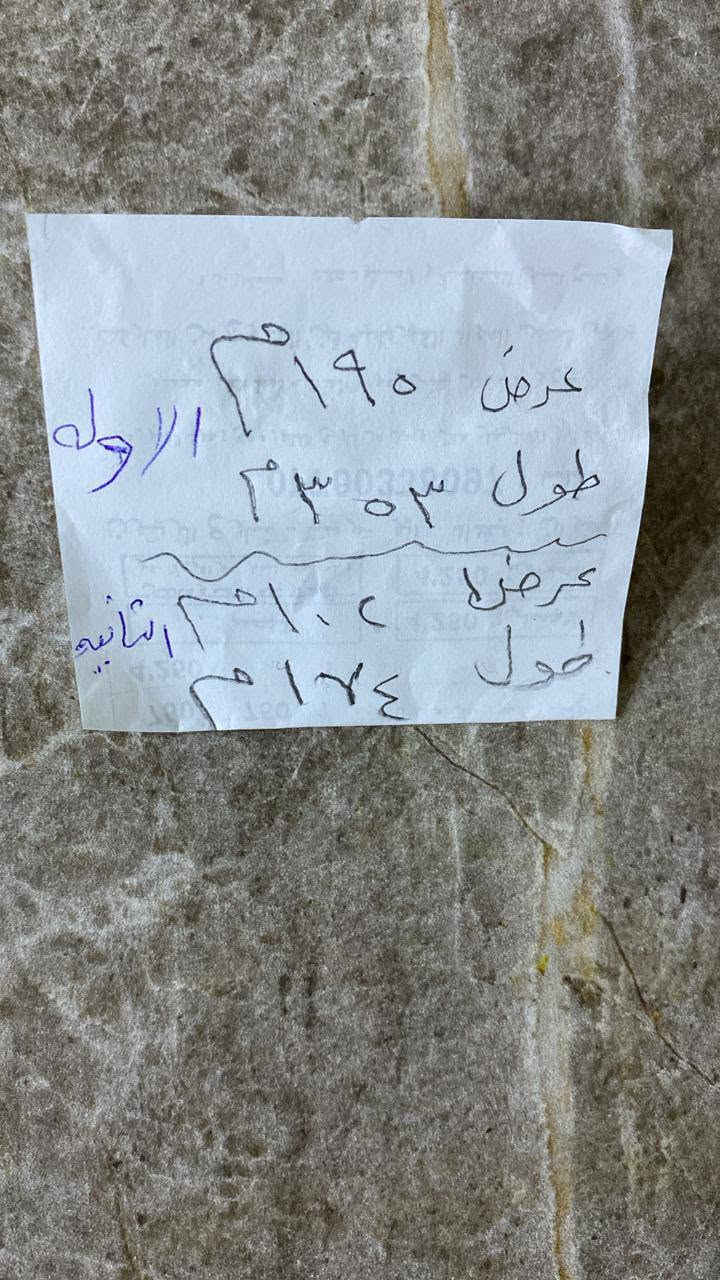 عرض ١٩٥ م
طول ٣٥٣ م
الاوله
عرض ١٠٢ م
طول ١٧٤ م
الثانيه